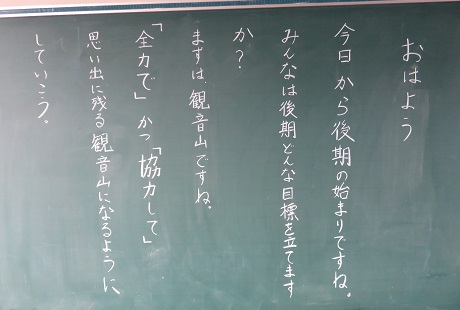 おはよう
今日から後期の始まりですね。
みんなは後期どんな目標を立てます
か？
まずは、観音山ですね。
「全力で」かつ「協力して」
思い出に残る観音山になるように、
していこう。